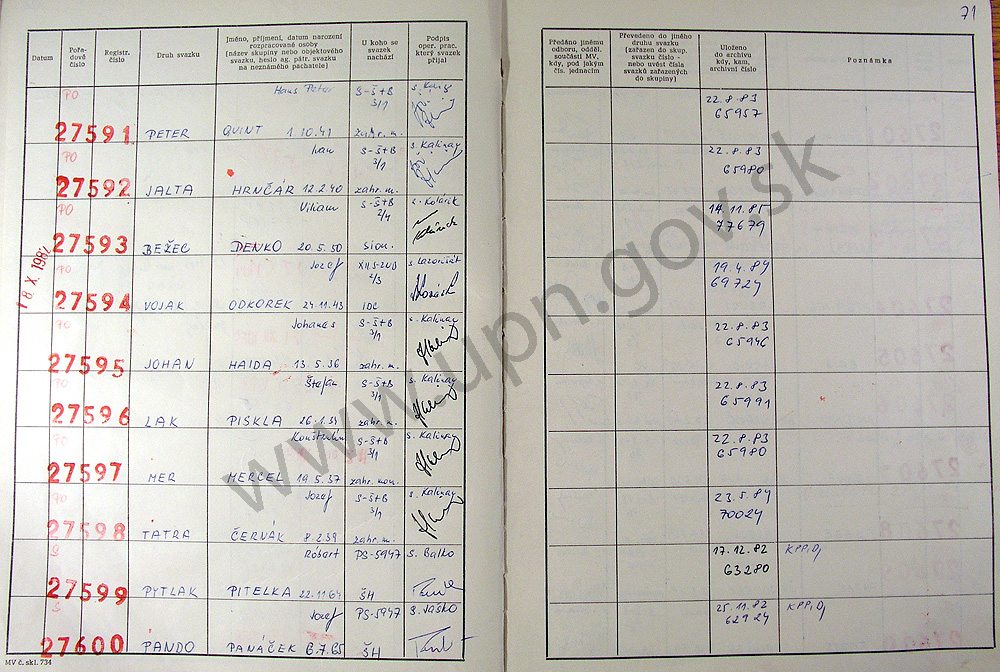 71
Datum
Pořadové číslo
Registr. číslo
Druh svazku
Jméno, příjmení, datum narození rozpracované osoby (název skupiny nebo objektového svazku, heslo ag. pátr. svazku na neznámého pachatele)
U koho se svazek nachází
Podpis oper. prac. který svazek přijal
Předáno jinému odboru, odděl. součásti MV, kdy, pod jakým čís. jednacím
Převedeno do jiného druhu svazku (zařazen do skup. svazku číslo - nebo uvést čísla svazků zařazených do skupiny)
Uloženo do archivu kdy, kam, archivní číslo
Poznámka
PO Hans Peter S-Š+B 22.8.83
27591 PETER QUINT 1.10.41 3/1 zahr. m. 65957
PO Ivan S-Š+B s. Kalinay 22.8.83
27592 JALTA HRNČÁR 12.2.40 3/1 zahr. m. 65980
PO Viliam S-Š+B s. Kolárik 14.11.85
27593 BEŽEC DENKO 20.5.50 2/4 sion. 77679
18. X. 1982
PO Jozef 19.4.84
27594 VOJAK ODKOREK 24.11.43 2/3 IDC 69724
PO Johanes S-Š+B s. Kalinay 22.8.83
27595 JOHAN HAIDA 13.5.36 3/1 zahr. m. 65946
PO Štefan S-Š+B s. Kalinay 22.8.83
27596 LAK PISKLA 26.1.34 3/1 zahr. m. 65991
PO S-Š+B s. Kalinay 22.8.83
27597 MER MERCEL 19.5.37 3/1 zahr. 65980
PO Jozef S-Š+B s. Kalinay 23.5.84
27598 TATRA ČERVÁK 8.2.39 3/1 zahr. m. 70024
S Róbert PS-5947 s. Balko 17.12.82
27599 PYTLAK PITELKA 22.11.64 ŠH 63280
S Jozef PS-5947 s. Jaško 25.11.82
27600 PANDO PANÁČEK 6.7.65 ŠH 62924
MV č. skl. 734
www.upn.gov.sk